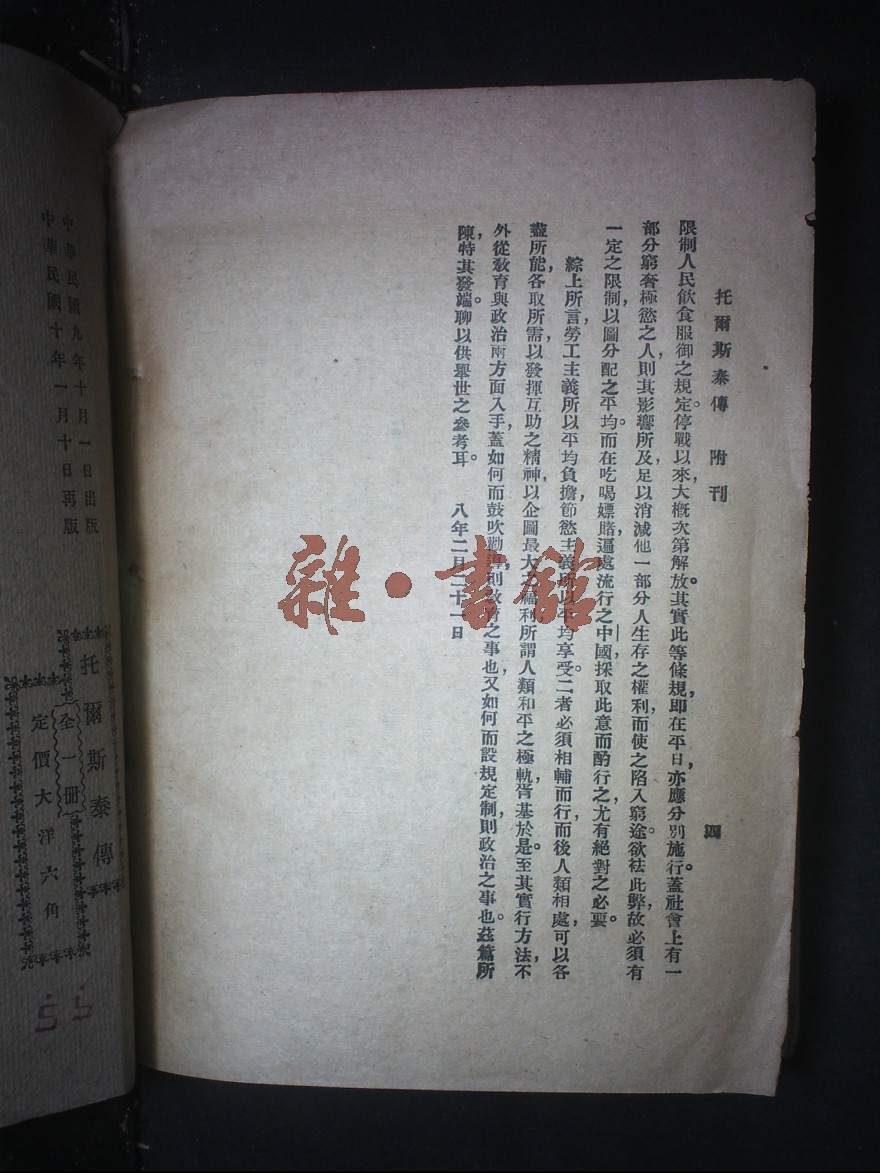 托爾斯泰傳 附刊
四
限制人民飲食服御之規定。停戰以來，大概次第解放。其實此等條規，即在平日，亦應分別施行。蓋社會上有一
部分窮奢極慾之人，則其影響所及，足以消減他一部分人生存之權利，而使之陷入窮途。欲袪此弊，故必須有
一定之限制，以圖分配之平均。而在吃喝嫖賭，遍處流行之中國，採取此意而酌行之，尤有絕對之必要。
綜上所言，勞工主義所以平均負擔，節慾主義所以平均享受。二者必須相輔而行，而後人類相處，可以各
盡所能，各取所需，以發揮互助之精神，以企圖最大之福利，所謂人類和平之極軌，胥基於是。至其實行方法，不
外從教育與政治兩方面入手，蓋如何而鼓吹勸導，則教育之事也，又如何而設規定制，則政治之事也。茲篇所
陳，特其發端，聊以供舉世之參考耳。 八年二月二十一日
雜·書館
中華民國九年十月一日出版
中華民國十年一月十日再版
托爾斯泰傳
全一冊
定價大洋六角